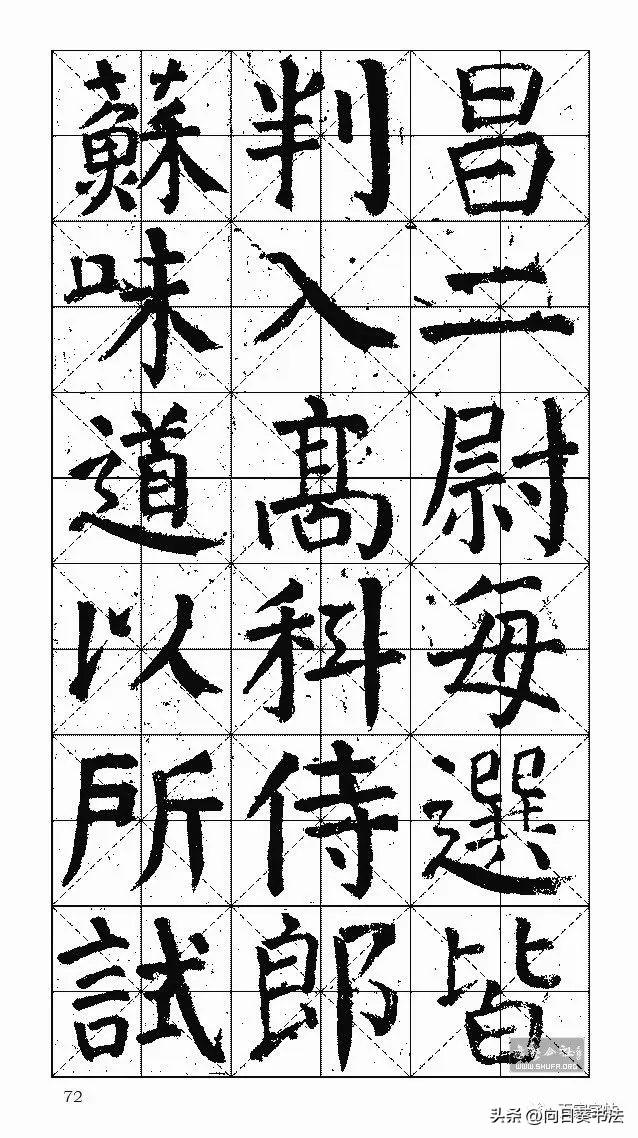 昌二尉每選皆
判入高科侍郎
蘇味道以所試
72
WWW.SHUFA.ORG
头条 @向日葵书法